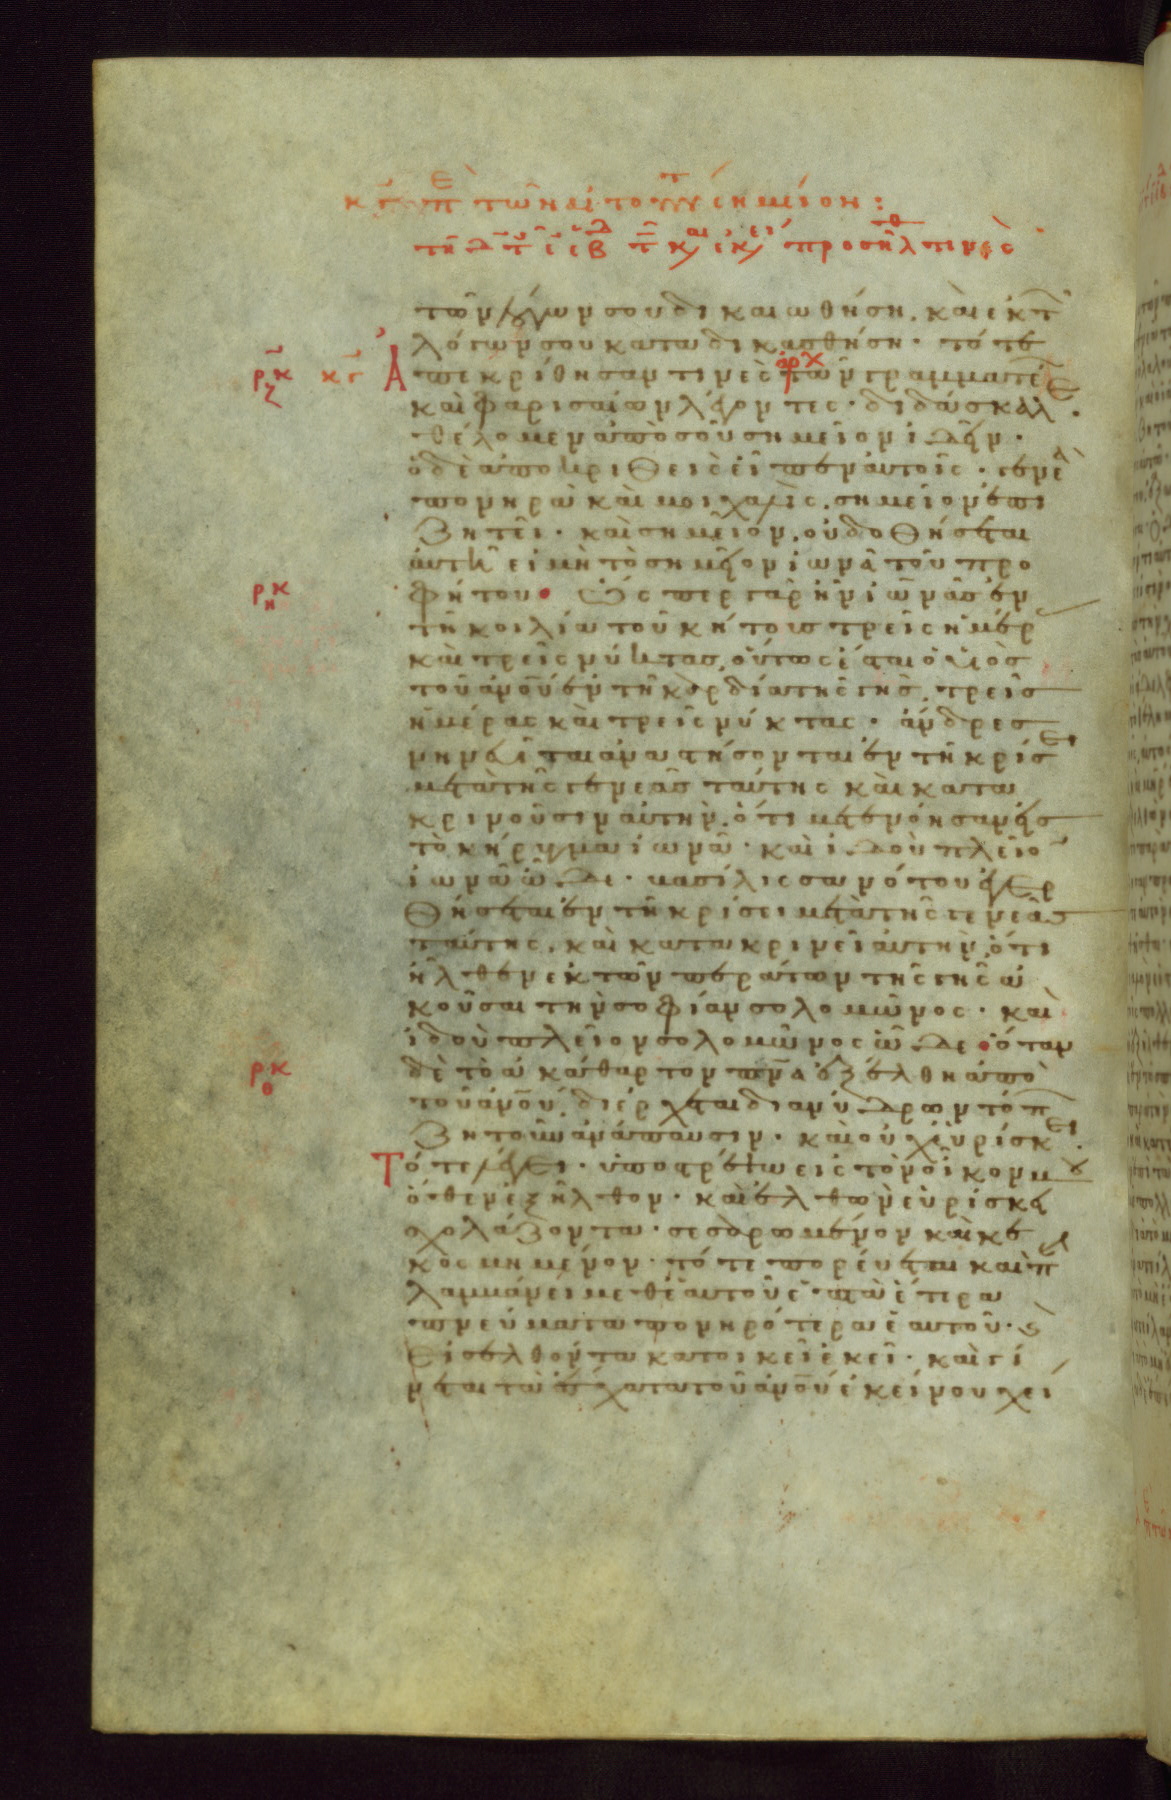 κγ πε τῶν αἰτούντ σημεῖον:
τῆ δ τ̅ ε̅ εβδ τ̅ κ,αι ἐκ,ει προσῆλθ τινὲς
τῶν λόγων σου δικαιωθήση. καὶ ἐκ τ
λόγων σου καταδικασθήση. τότε
ρκζ κγ ἀρχ Ἀπεκρίθησαν τινὲς τῶν γραμματέ
καὶ φαρισαίων λέγοντες. διδάσκαλε.
θέλομεν ἀπὸ σοῦ σημεῖον ἰδεῖν.
ὁ δὲ ἀποκριθεὶς εἶπεν αὐτοῖς. γενεὰ
πονηρὰ καὶ μοιχαλὶς. σημεῖον ἐπι
ζητεῖ. καὶ σημεῖον. οὐ δοθήσεται
αὐτῆ εἰ μὴ τὸ σημεῖον ἰωνᾶ τοῦ προ
ρκη φήτου. Ὥσπερ γὰρ ἦν ἰωνᾶς ἐν
τῆ κοιλία τοῦ κήτους τρεῖς ἡμέρ
καὶ τρεῖς νύκτας. οὕτως ἔσται ὁ υἱὸς
τοῦ ἀνο̅υ ἐν τῆ καρδία τῆς γῆς. τρεῖς
ἡμέρας καὶ τρεῖς νύκτας. ἄνδρες
νηνευῖται ἀναστήσονται ἐν τῆ κρίσει
μετὰ τῆς γενεᾶς ταύτης καὶ κατα
κρινοῦσιν αὐτὴν. ὅτι μετενόησαν εἰς
τὸ κήρυγμα ἰωνᾶ. καὶ ἰδοὺ πλεῖο
ἰωνᾶ ὧδε. βασίλισσα νότου ἐγερ
θήσεται ἐν τῆ κρίσει μετὰ τῆς γενεᾶς
ταύτης. καὶ κατακρινεῖ αὐτὴν. ὅτι
ἦλθεν ἐκ τῶν περάτων τῆς γῆς ἀ
κοῦσαι τὴν σοφίαν σολομῶνος. καὶ
ἰδοὺ πλεῖον σολομῶνος ὧδε. ὅταν
ρκθ δὲ τὸ ἀκάθαρτον πν̅α ἐξέλθη ἀπὸ
τοῦ ἀνο̅υ. διέρχεται δι ἀνύδρων τόπ
ζητοῦν ἀνάπαυσιν. καὶ οὐχ εὑρίσκει.
Τότε λέγει. ὑποστρέψω εἰς τὸν οἶκον μου
ὅθεν ἐξῆλθον. καὶ ἐλθὼν εὑρίσκει
σχολάζοντα. σεσαρωμένον καὶ κε
κοσμημένον. τότε πορεύεται καὶ π
λαμβάνει μεθ ἑαυτοῦ ἑπτὰ ἕτερα
πνεύματα πονηρότερα ἑαυτοῦ. καὶ
εἰσελθόντα κατοικεῖ ἐκεῖ. καὶ γί
νεται τὰ ἔσχατα τοῦ ἀνο̅υ ἐκείνου χεί